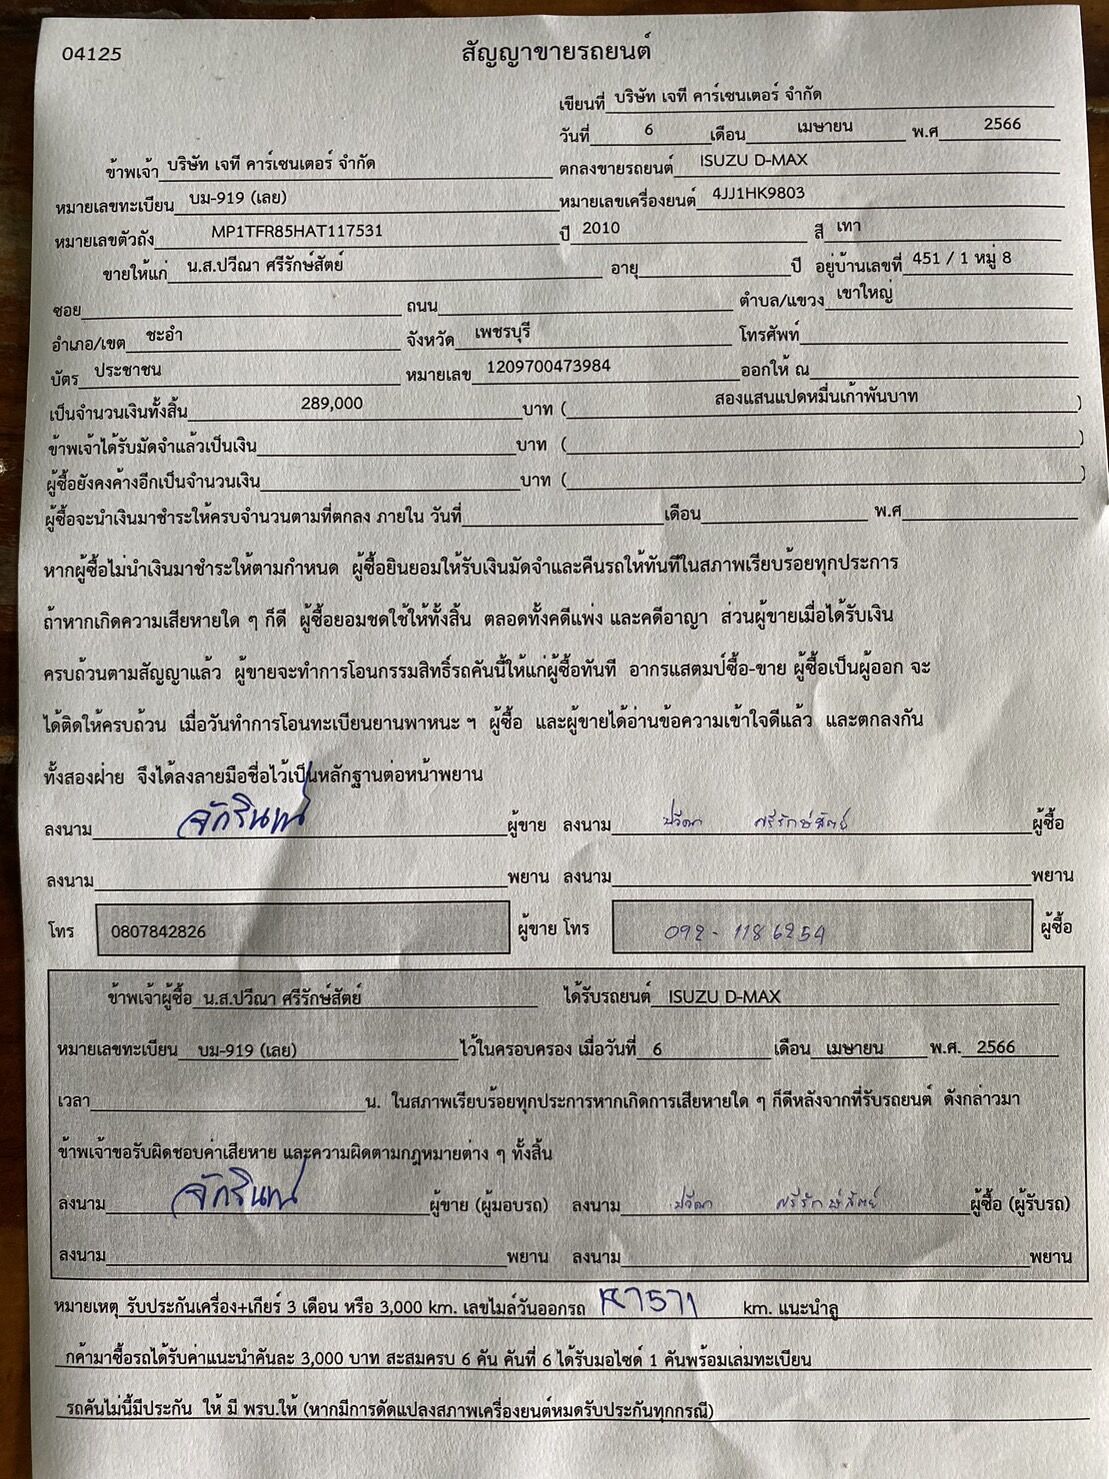 04125
สัญญาขายรถยนต์
เขียนที่ บริษัท เจที คาร์เซนเตอร์ จำกัด
วันที่ 6 เดือน เมษายน พ.ศ 2566
ข้าพเจ้า บริษัท เจที คาร์เซนเตอร์ จำกัด ตกลงขายรถยนต์ ISUZU D-MAX
หมายเลขทะเบียน บม-919 (เลย) หมายเลขเครื่องยนต์ 4JJ1HK9803
หมายเลขตัวถัง MP1TFR85HAT117531 ปี 2010 สี เทา
ขายให้แก่ น.ส.ปวีณา ศรีรักษ์สัตย์ อายุ ปี อยู่บ้านเลขที่ 451 / 1 หมู่ 8
ซอย ถนน ตำบล/แขวง เขาใหญ่
อำเภอ/เขต ชะอำ จังหวัด เพชรบุรี โทรศัพท์
บัตร ประชาชน หมายเลข 1209700473984 ออกให้ ณ
เป็นจำนวนเงินทั้งสิ้น 289,000 บาท ( สองแสนแปดหมื่นเก้าพันบาท )
ข้าพเจ้าได้รับมัดจำแล้วเป็นเงิน บาท ( )
ผู้ซื้อยังคงค้างอีกเป็นจำนวนเงิน บาท ( )
ผู้ซื้อจะนำเงินมาชำระให้ครบจำนวนตามที่ตกลง ภายใน วันที่ เดือน พ.ศ
หากผู้ซื้อไม่นำเงินมาชำระให้ตามกำหนด ผู้ซื้อยินยอมให้รับเงินมัดจำและคืนรถให้ทันทีในสภาพเรียบร้อยทุกประการ
ถ้าหากเกิดความเสียหายใด ๆ ก็ดี ผู้ซื้อยอมชดใช้ให้ทั้งสิ้น ตลอดทั้งคดีแพ่ง และคดีอาญา ส่วนผู้ขายเมื่อได้รับเงิน
ครบถ้วนตามสัญญาแล้ว ผู้ขายจะทำการโอนกรรมสิทธิ์รถคันนี้ให้แก่ผู้ซื้อทันที อากรแสตมป์ซื้อ-ขาย ผู้ซื้อเป็นผู้ออก จะ
ได้ติดให้ครบถ้วน เมื่อวันทำการโอนทะเบียนยานพาหนะ ฯ ผู้ซื้อ และผู้ขายได้อ่านข้อความเข้าใจดีแล้ว และตกลงกัน
ทั้งสองฝ่าย จึงได้ลงลายมือชื่อไว้เป็นหลักฐานต่อหน้าพยาน
ลงนาม จักรินทร์ ผู้ขาย ลงนาม ปวีณา ศรีรักษ์สัตย์ ผู้ซื้อ
ลงนาม พยาน ลงนาม พยาน
โทร 0807842826 ผู้ขาย โทร 092-1186254 ผู้ซื้อ
ข้าพเจ้าผู้ซื้อ น.ส.ปวีณา ศรีรักษ์สัตย์ ได้รับรถยนต์ ISUZU D-MAX
หมายเลขทะเบียน บม-919 (เลย) ไว้ในครอบครอง เมื่อวันที่ 6 เดือน เมษายน พ.ศ. 2566
เวลา น. ในสภาพเรียบร้อยทุกประการหากเกิดการเสียหายใด ๆ ก็ดีหลังจากที่รับรถยนต์ ดังกล่าวมา
ข้าพเจ้าขอรับผิดชอบค่าเสียหาย และความผิดตามกฎหมายต่าง ๆ ทั้งสิ้น
ลงนาม จักรินทร์ ผู้ขาย (ผู้มอบรถ) ลงนาม ปวีณา ศรีรักษ์สัตย์ ผู้ซื้อ (ผู้รับรถ)
ลงนาม พยาน ลงนาม พยาน
หมายเหตุ รับประกันเครื่อง+เกียร์ 3 เดือน หรือ 3,000 km. เลขไมล์วันออกรถ km. แนะนำลู
กค้ามาซื้อรถได้รับค่าแนะนำคันละ 3,000 บาท สะสมครบ 6 คัน คันที่ 6 ได้รับมอไซด์ 1 คันพร้อมเล่มทะเบียน
รถคันไม่นี้มีประกัน ให้ มี พรบ.ให้ (หากมีการดัดแปลงสภาพเครื่องยนต์หมดรับประกันทุกกรณี)